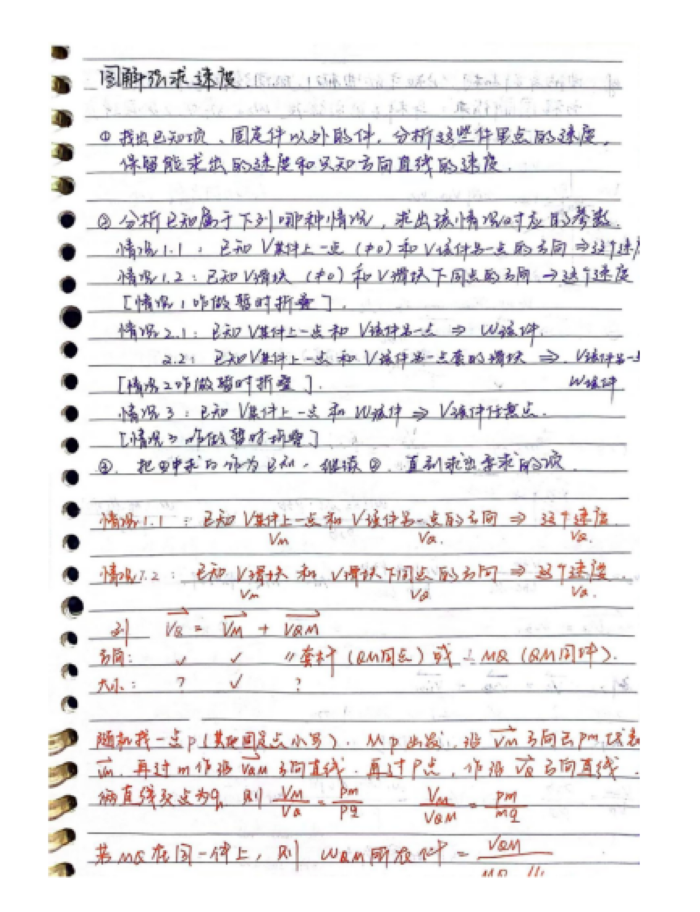 图解法求速度.
① 找出已知项、固定件以外的件, 分析这些件里点的速度,
保留能求出的速度和只知方向直线的速度.
② 分析已知属于下列哪种情况, 求出该情况对应的参数.
情况1.1: 已知 V某件上一点 (≠0) 和 V该件另一点的方向 ⇒ 这个速
情况1.2: 已知 V滑块 (≠0) 和 V滑块下同点的方向 → 这个速度
[情况1咋做暂时折叠].
情况2.1: 已知 V某件上一点 和 V该件另一点 ⇒ W该件.
2.2: 已知V某件上一点 和 V该件另一点套的滑块 ⇒ V该件另一
[情况2咋做暂时折叠]. W该件
情况3: 已知 V某件上一点 和 W该件 ⇒ V该件任意点.
[情况3咋做暂时折叠]
③. 把②中求的作为已知, 继续②, 直到求出要求的项
情况1.1: 已知 V某件上一点 和 V该件另一点的方向 ⇒ 这个速度.
VM VQ. VQ.
情况1.2: 已知 V滑块 和 V滑块下同点的方向 ⇒ 这个速度.
VM VQ VQ.
列 VQ = VM + VQM
方向: ✓ ✓ //套杆 (QM同点) 或 ⊥MQ (QM同件).
大小: ? ✓ ?
随机找一点P (其他固定点小写). 从P出发, 沿 VM 方向画Pm, 代表
VM, 再过m作沿 VQM 方向直线. 再过P点, 作沿 VQ 方向直线.
俩直线交点为q, 则 VM/VQ = Pm/Pq VM/VQM = Pm/mq
若MQ在同一件上, 则 WQM所在件 = VQM